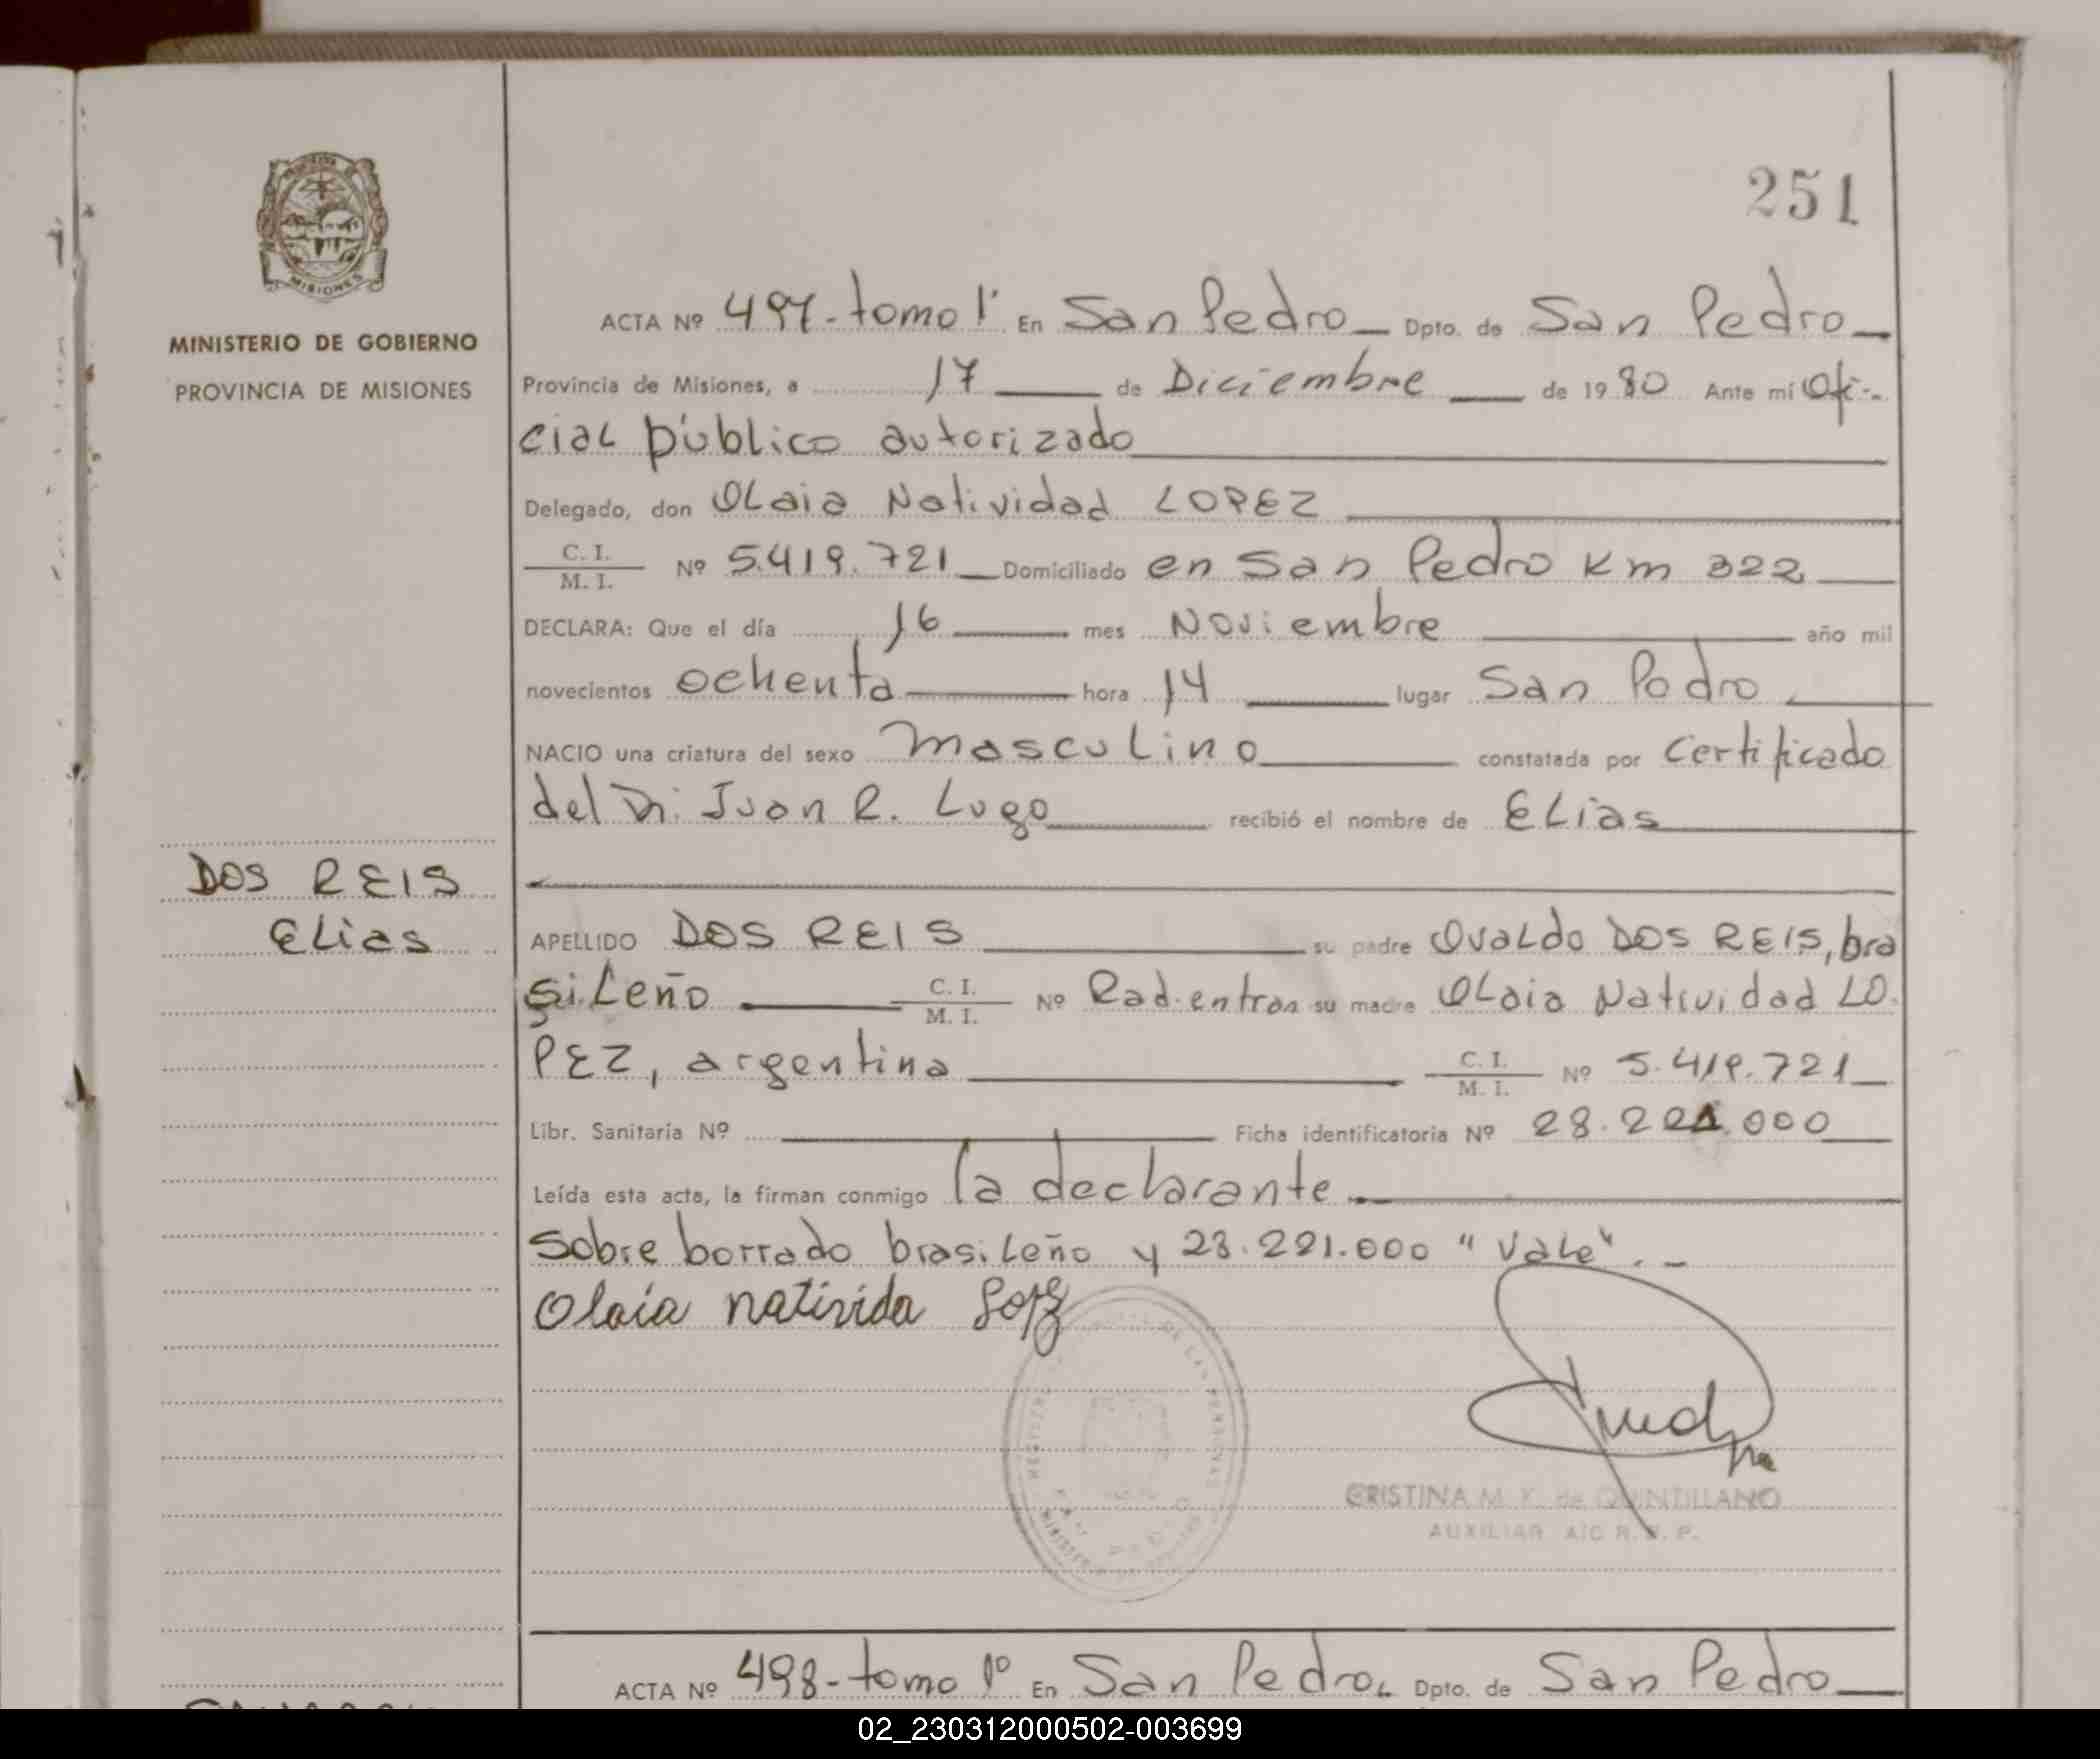 251
MISIONES
MINISTERIO DE GOBIERNO
PROVINCIA DE MISIONES
ACTA Nº 497-tomo 1º En San Pedro Dpto. de San Pedro
Provincia de Misiones, a 17 de Diciembre de 1980 Ante mí Ofi-
cial público autorizado
Delegado, don OLaia Natividad LOPEZ
C. I.
M. I. Nº 5.419.721 Domiciliado en San Pedro Km 322
DECLARA: Que el día 16 mes Noviembre año mil
novecientos ochenta hora 14 lugar San Pedro
NACIO una criatura del sexo masculino constatada por certificado
del Dr. Juan R. Lugo recibió el nombre de ELias
DOS REIS
ELias
APELLIDO DOS REIS su padre OvaLdo DOS REIS, bra
siLeño C. I.
M. I. Nº Rad. entran su madre OLaia Natividad LO
PEZ, argentina C. I.
M. I. Nº 5.419.721
Libr. Sanitaria Nº Ficha identificatoria Nº 28.221.000
Leída esta acta, la firman conmigo la declarante
Sobre borrado brasiLeño y 28.221.000 "VaLe".-
Olaia natirida
CRISTINA M. K. de QUINTILLANO
AUXILIAR
ACTA Nº 498-tomo 1º En San Pedro Dpto. de San Pedro
02_230312000502-003699